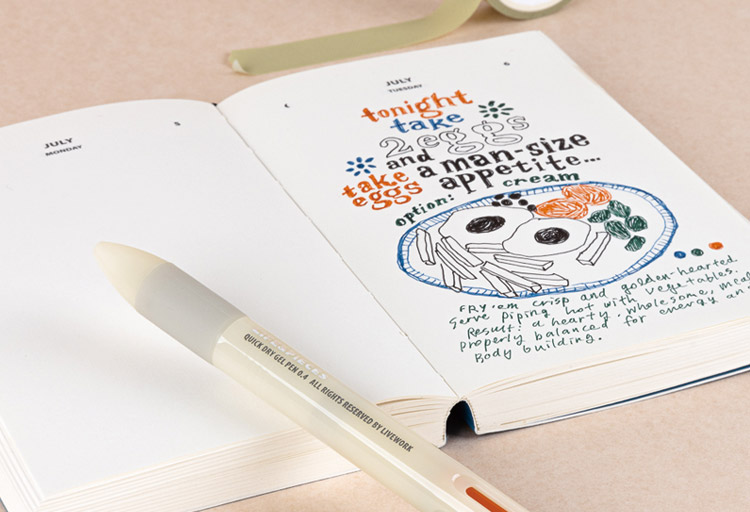 JULY
MONDAY
5
JULY
TUESDAY
6
tonight
take
2 eggs
and a man-size
take appetite...
eggs
option: cream
FRY 'em crisp and golden-hearted.
Serve piping hot with vegetables.
Result: a hearty, wholesome, meal
properly balanced for energy and
Body building.
QUICK DRY GEL PEN 0.4 ALL RIGHTS RESERVED BY LIVEWORK